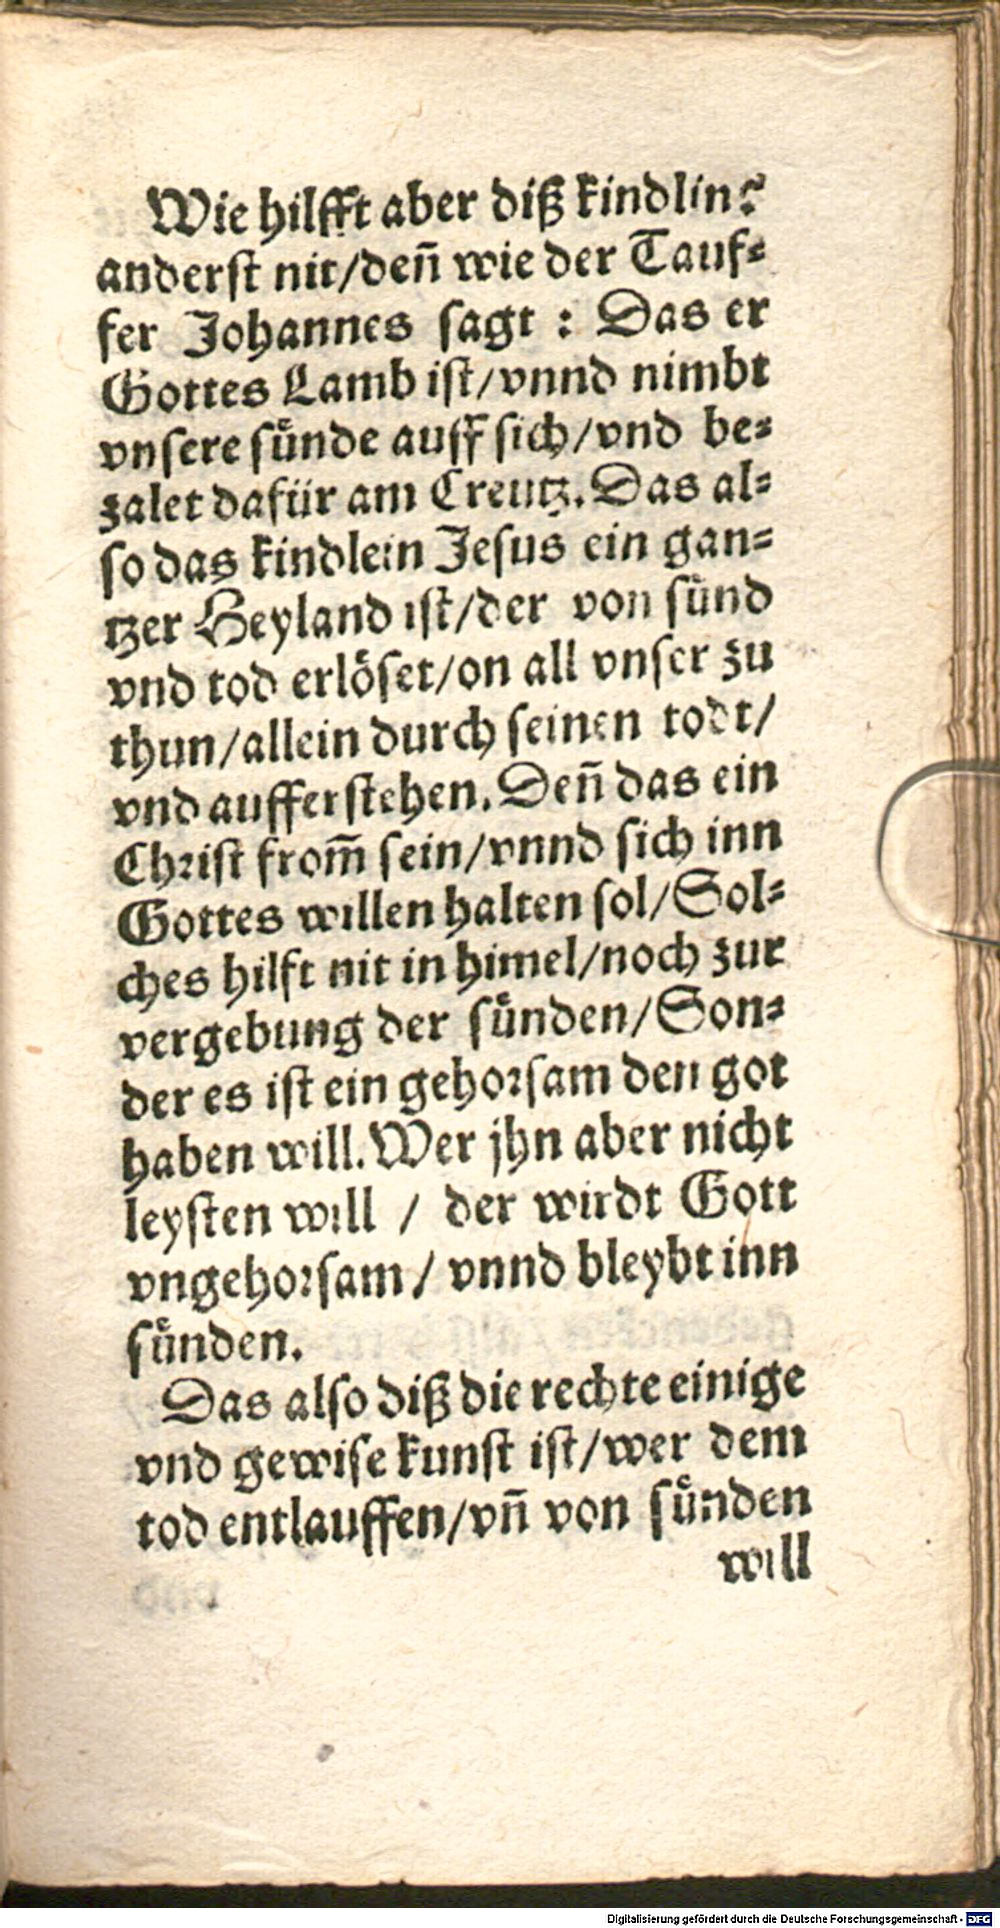 Wie hilfft aber diß kindlin?
anderst nit/deñ wie der Tauf⸗
fer Johannes sagt : Das er
Gottes Lamb ist/vnnd nimbt
vnsere sünde auff sich/vnd be⸗
zalet dafür am Creutz. Das al⸗
so das kindlein Jesus ein gan⸗
tzer Heyland ist/der von sünd
vnd tod erlöset/on all vnser zu
thun/allein durch seinen todt/
vnd aufferstehen. Deñ das ein
Christ from̃ sein/vnnd sich inn
Gottes willen halten sol/Sol⸗
ches hilft nit in himel/noch zur
vergebung der sünden/Son⸗
der es ist ein gehorsam den got
haben will. Wer jhn aber nicht
leysten will / der wirdt Gott
vngehorsam/ vnnd bleybt inn
sünden.
Das also diß die rechte einige
vnd gewise kunst ist/wer dem
tod entlauffen/vñ von sünden
will
Digitalisierung gefördert durch die Deutsche Forschungsgemeinschaft - DFG